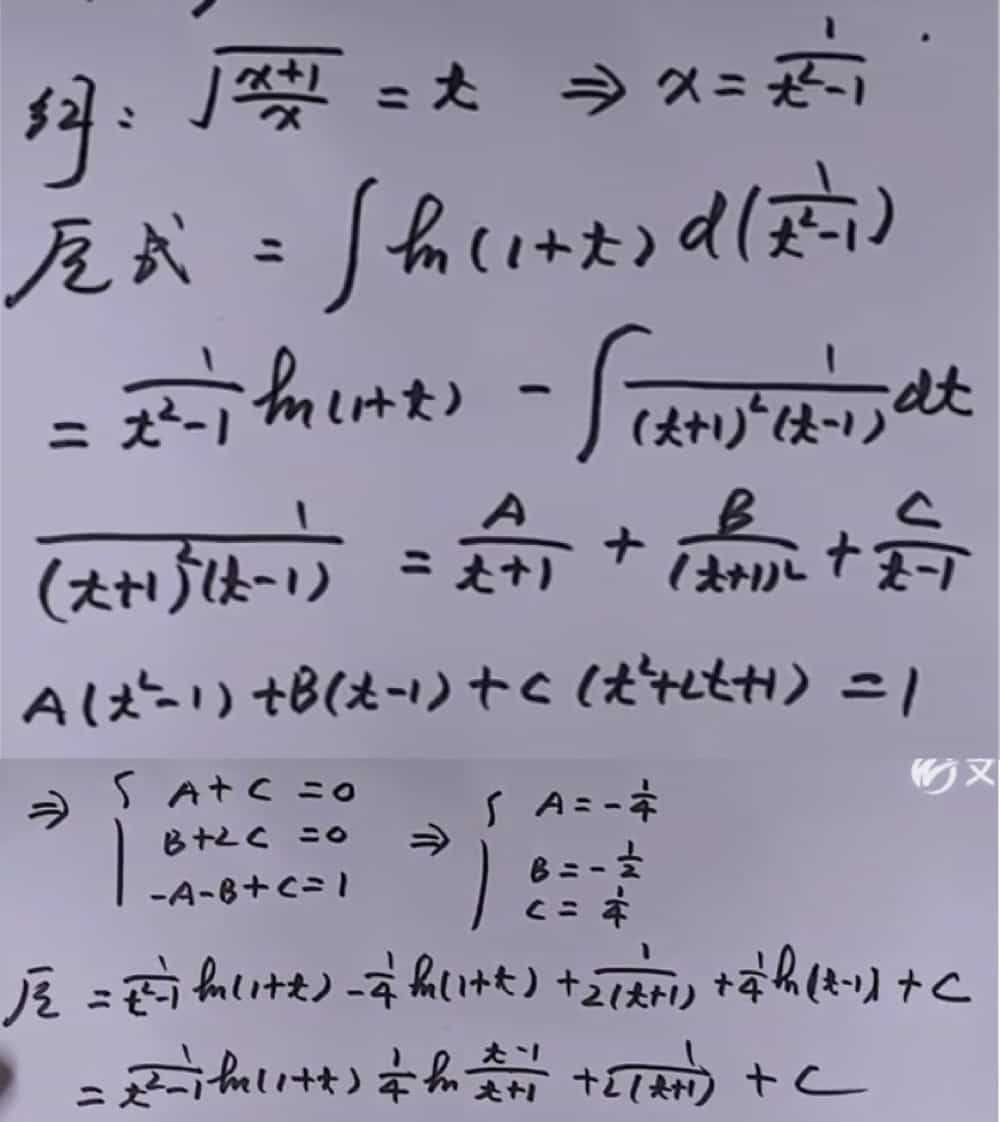 解: √((x+1)/x) = t ⇒ x = 1/(t²-1)
原式 = ∫ ln(1+t) d(1/(t²-1))
= 1/(t²-1) ln(1+t) - ∫ 1/((t+1)²(t-1)) dt
1/((t+1)²(t-1)) = A/(t+1) + B/(t+1)² + C/(t-1)
A(t²-1) + B(t-1) + C(t²+2t+1) = 1
⇒ { A+C=0
B+2C=0
-A-B+C=1
⇒ { A=-1/4
B=-1/2
C=1/4
原 = 1/(t²-1) ln(1+t) - 1/4 ln(1+t) + 1/(2(t+1)) + 1/4 ln(t-1) + C
= 1/(t²-1) ln(1+t) 1/4 ln (t-1)/(t+1) + 1/(2(t+1)) + C